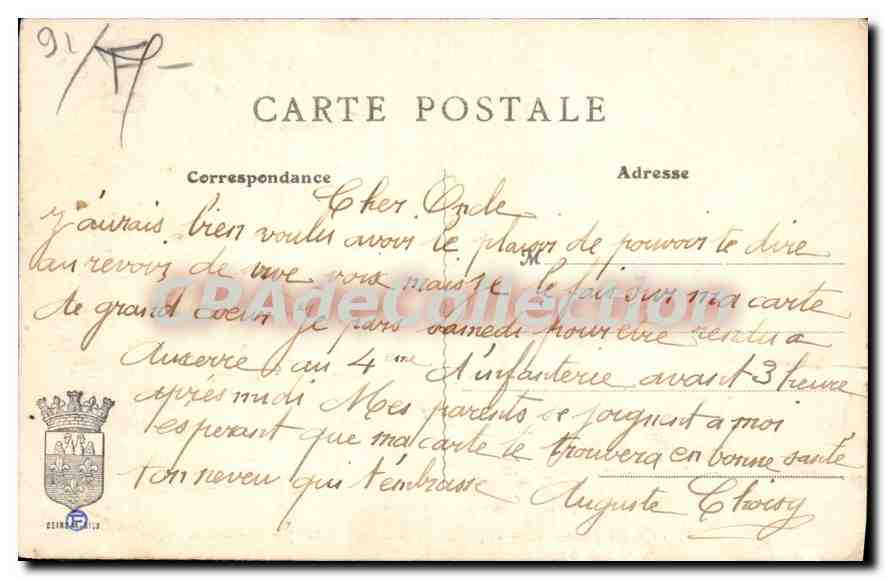 91
CARTE POSTALE
Correspondance
Adresse
Cher Oncle
j'aurais bien voulu avoir le plaisir de pouvoir te dire
M
au revoir de vive voix mais je le fais sur ma carte
de grand coeur je pars samedi pour etre rendu a
Auxerre au 4eme d'infanterie avant 3 heure
après midi Mes parents se joignent a moi
esperant que ma carte te trouvera en bonne santé
ton neveu qui t'embrasse
Auguste Choisy
CPAdeCollection